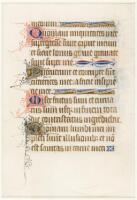 meorum
Quoniam iniquitates mee
supergresse sunt caput meum
et sicut onus grave gravate
sunt super me
Putruerunt et corrupte sunt
cicatrices mee a facie insipi
entie mee
Miser factus sum et curva
tus sum usque in finem tota
die contristatus ingrediebar
Quoniam lumbi mei im
pleti sunt illusionibus et no
est sanitas in carne mea